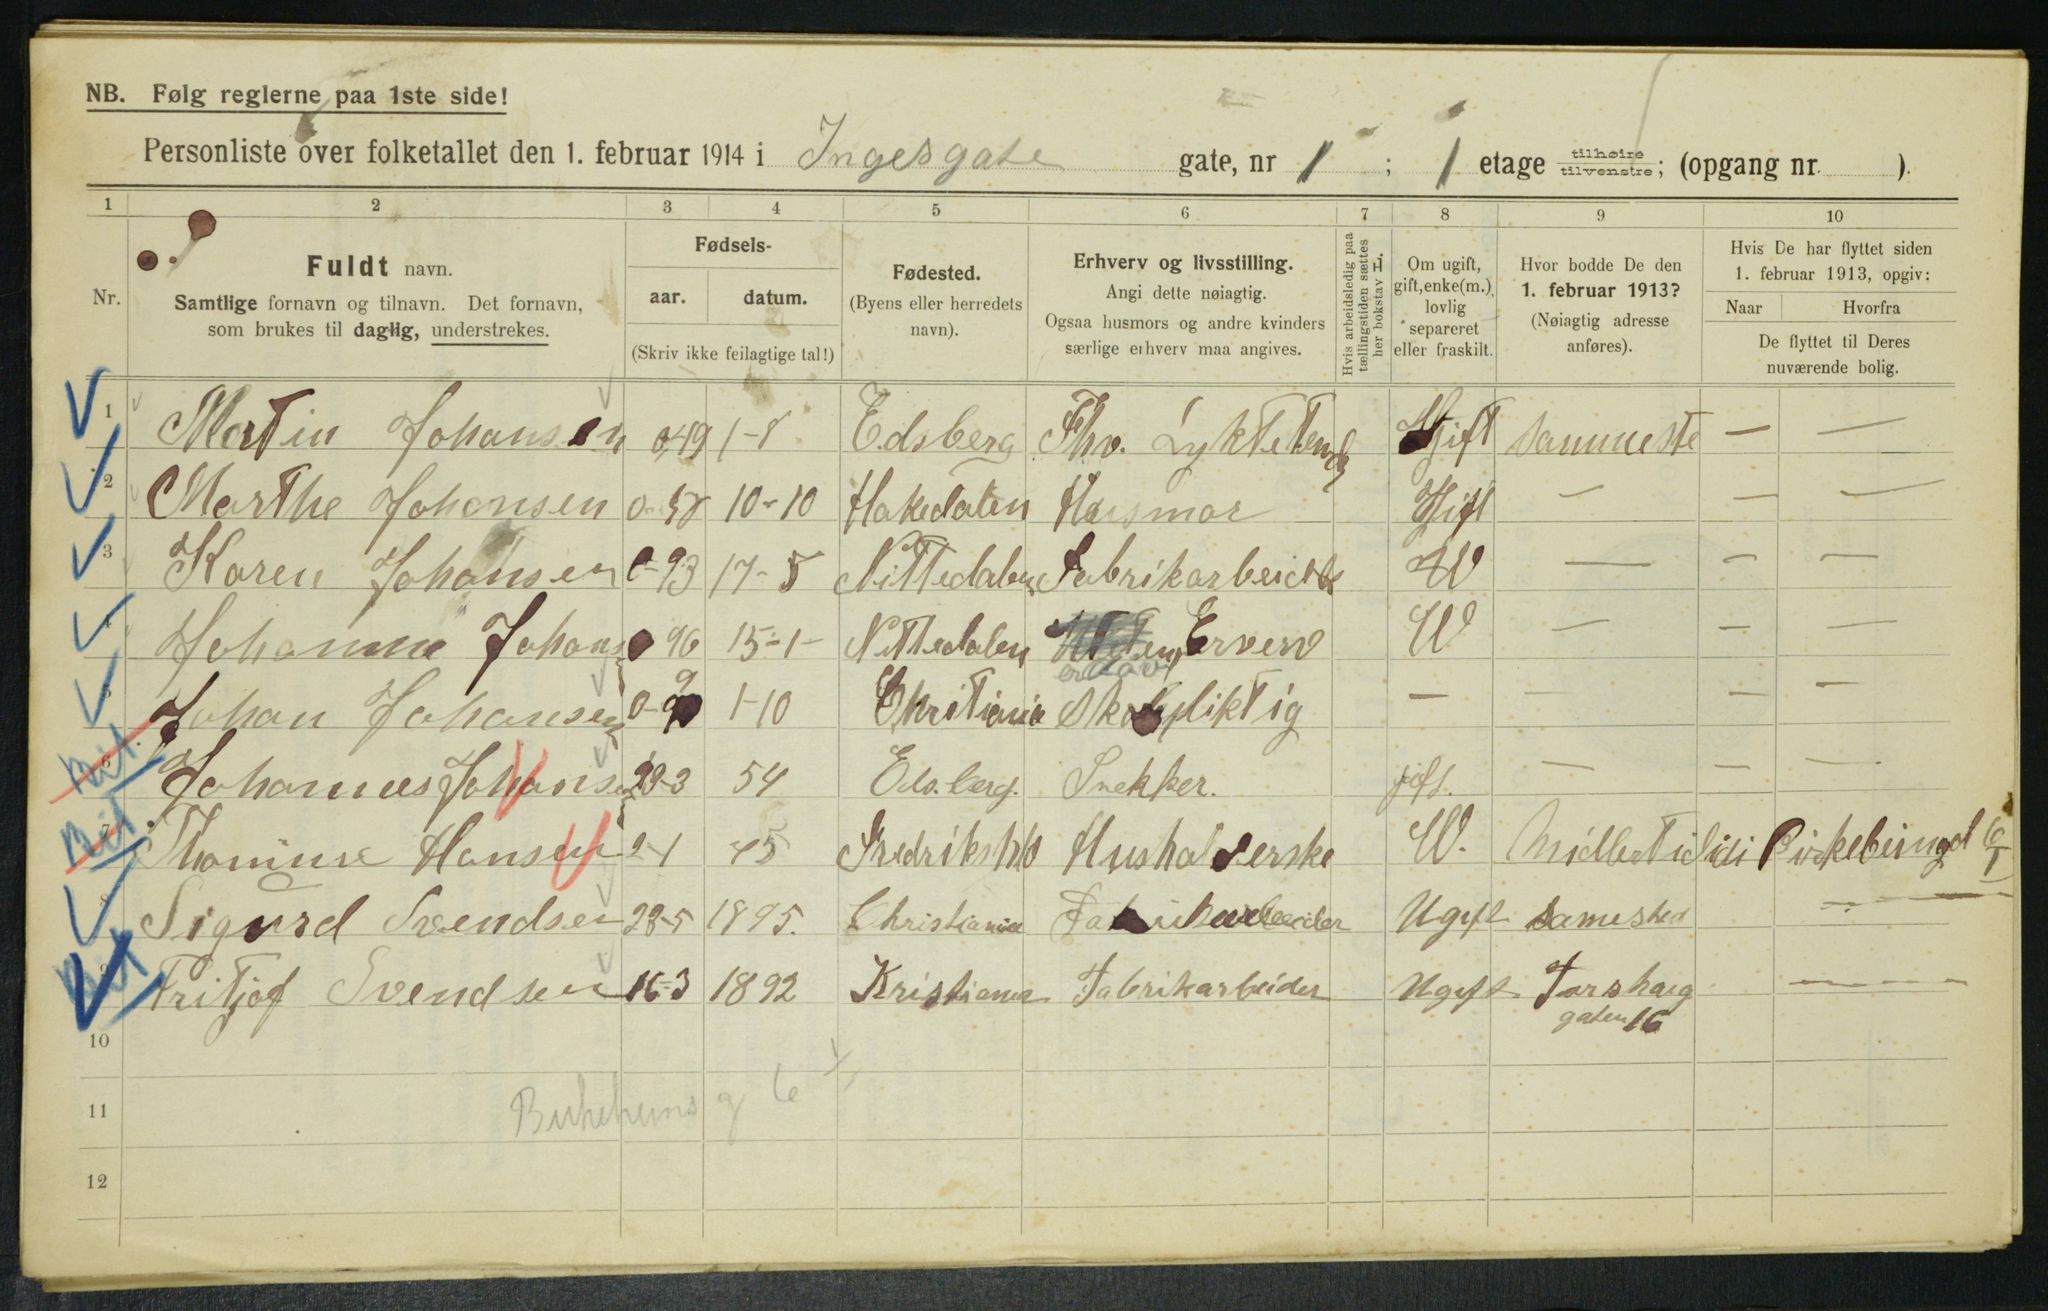 NB. Følg reglerne paa 1ste side!
Personliste over folketallet den 1. februar 1914 i Ingesgate gate, nr 1 ; 1 etage tilhøire tilvenstre; (opgang nr. ).
1 2 3 4 5 6 7 8 9 10
Nr.
Fuldt navn.
Samtlige fornavn og tilnavn. Det fornavn,
som brukes til daglig, understrekes.
Fødsels-
aar. datum.
(Skriv ikke feilagtige tal!)
Fødested.
(Byens eller herredets
navn).
Erhverv og livsstilling.
Angi dette nøiagtig.
Ogsaa husmors og andre kvinders
særlige erhverv maa angives.
Hvis arbeidsledig paa
tællingstiden sættes
her bokstav L.
Om ugift,
gift, enke(m.),
lovlig
separeret
eller fraskilt.
Hvor bodde De den
1. februar 1913?
(Nøiagtig adresse
anføres).
Hvis De har flyttet siden
1. februar 1913, opgiv:
Naar Hvorfra
De flyttet til Deres
nuværende bolig.
1 Martin Johansen 49 1-8 Edsberg Fhv. Lyktetender Gift sammeste — —
2 Marthe Johansen 0-58 10-10 Hakedalen Husmor Gift — — —
3 Karen Johansen 0-93 17-5 Nittedalen Fabrikarbeiders W — — —
4 Johanne Johans 96 15-1- Nittedalen Uten Erverv W — — —
5 Johan Johansen 0-99 1-10 Chritiania Skolepliktig — — — —
6 Johannes Johansen 23-3 54 Edsberg. Snekker. gift. — — —
7 Thomine Hansen 2-1 45 Fredrikshld Husholderske W. Midlertidi i Birkebeinergd 6/I
8 Sigurd Svendsen 23-5 1895. Christiania Fabrikarbeider Ugift Samested — —
9 Fritjof Svendsen 16-3 1892 Kristiania Fabrikarbeider Ugift Torshaug — —
gaten 16
10
11
12